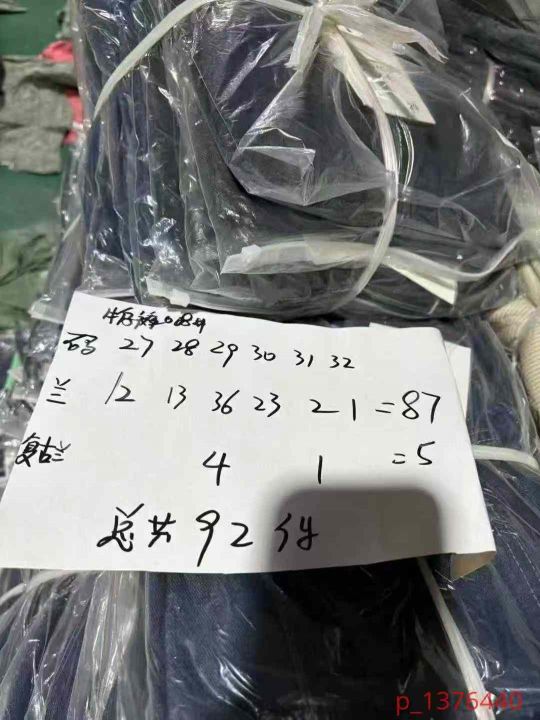 码 27 28 29 30 31 32
兰 12 13 36 23 2 1 =87
复古兰 4 1 =5
总共92件
p_1376440